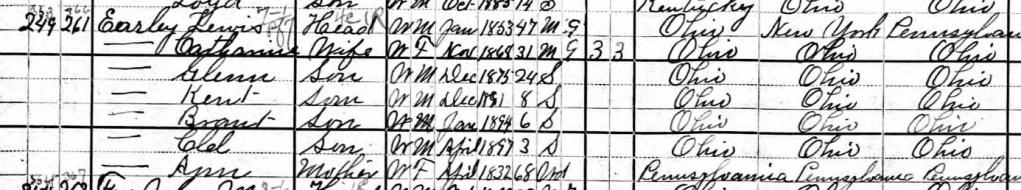 Loyd Son W M Oct 1885 14 S Kentucky Ohio Ohio
249 261 Earley Lewis Head W M Jan 1853 47 M 9 Ohio New York Pennsylvan
— Catharine Wife W F Nov 1868 31 M 9 3 3 Ohio Ohio Ohio
— Glenn Son W M Dec 1875 24 S Ohio Ohio Ohio
— Kent Son W M Dec 1891 8 S Ohio Ohio Ohio
— Brant Son W M Jan 1894 6 S Ohio Ohio Ohio
— Clel Son W M April 1897 3 S Ohio Ohio Ohio
— Ann Mother W F April 1832 68 Wd Pennsylvania Pennsylvania Pennsylvan